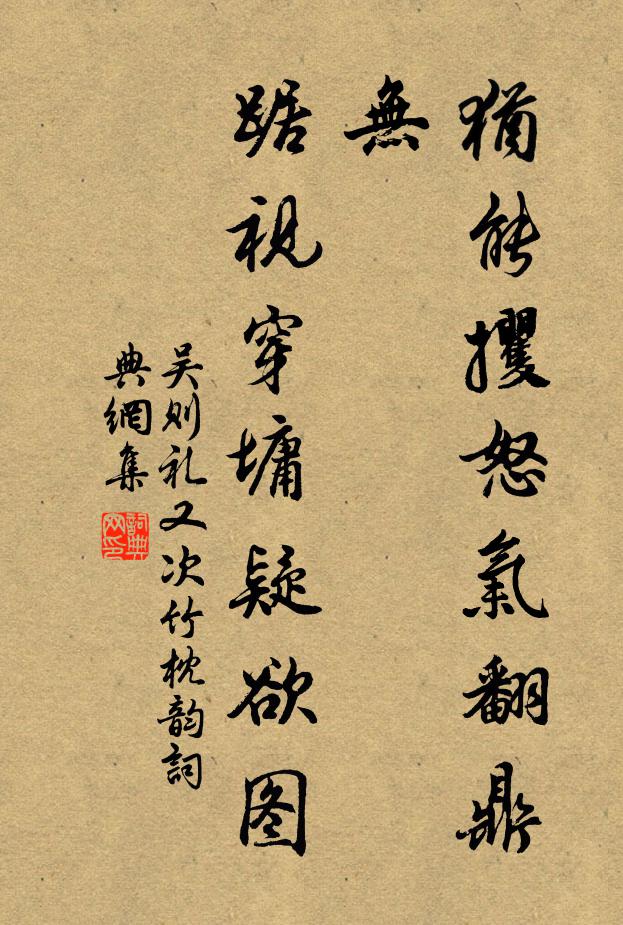 猶能攫怒氣翻鼎
無
踞視穿墉疑欲图
吴则礼又次竹枕韵詞
典網集
詞典
网印